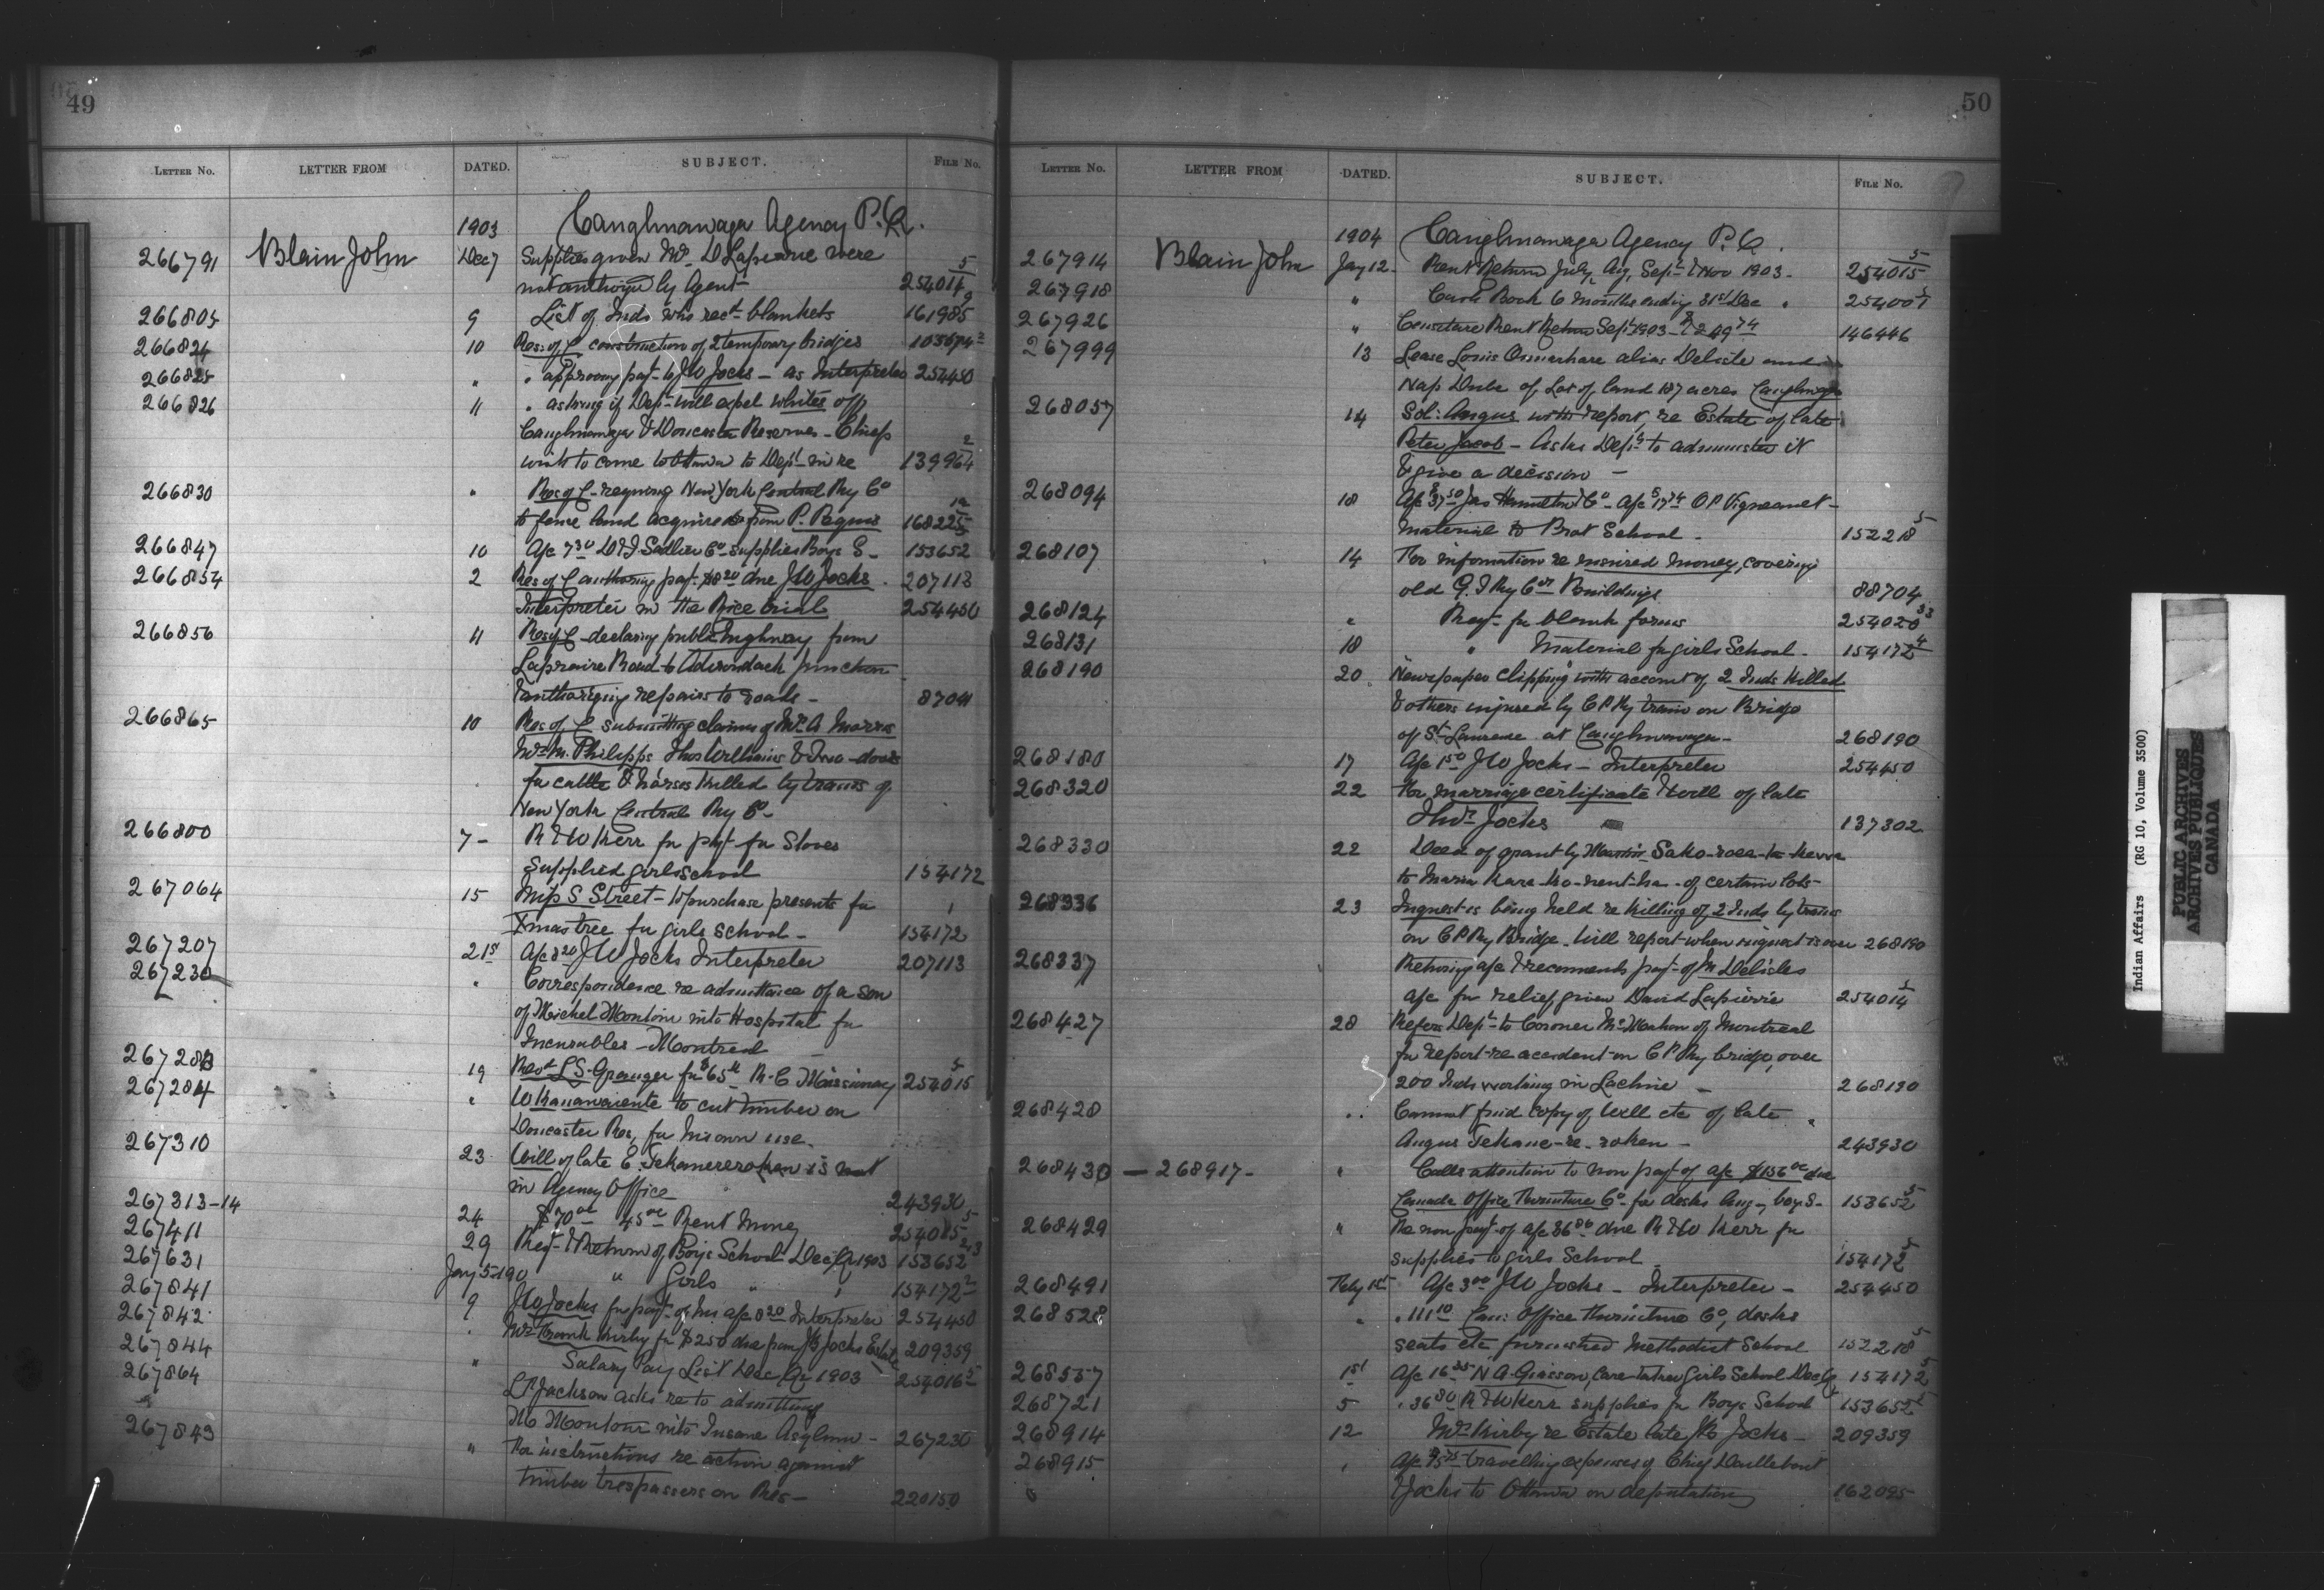 49
LETTER NO. LETTER FROM DATED. SUBJECT. FILE No.
1903 Caughnawaga Agency P.Q.
266791 Blain John Dec 7 Supplies given Mrs D Lapierre were
not authorized by Agent 254014 5
266805 9 List of Inds who recd blankets 161985 9
266824 10 Res: of C construction of 2 temporary bridges 103674 2
266825 " " approving payt to J W Jocks - as Interpreter 254450
266826 11 " asking if Dept will expel whites off
Caughnawaga & Doncaster Reserves - Chiefs
wish to come to Ottawa to Dept in re 139964 2
266830 " Res of C - requiring New York Central Ry Co
to fence land acquired from P. 168225
266847 10 A/c 7 30 D & J Sadlier Co supplies Boys S - 153652
266854 2 Res of C authorizing payt $8 20 due J W Jocks 207113
Interpreter in the Rice trial 254450
266856 11 Res of C - declaring public highway from
Laprairie Road to Adirondack Junction
& authorizing repairs to roads - 87041
266865 10 Res of C submitting claims of Mrs A Morris
Mrs M. Philipps Thos Williams &
for cattle & horses killed by trains of
New York Central Ry Co -
266800 7 - R & W Kerr for payt for Stoves
supplied girls school 154172
267064 15 Miss S Street - to purchase presents for
Xmas tree for girls school - 154172 1
267207 21st A/c 8 20 J W Jocks Interpreter 207113
267230 " Correspondence re admittance of a son
of Michel Montour into Hospital for
Incurables - Montreal -
267283 19 Revd L S. Granger for $65 R.C Missionary 254015 5
267284 " W to cut timber on
Doncaster Res, for his own use.
267310 23 Will of late E. Tekanereroken is not
in Agency Office 243930
267313-14 24 $70 00 45 00 Rent Money 254015 5
267411 29 Rept & Return of Boys School Dec Qr 1903 153652
267631 Jany 5 190 " Girls " " 154172 2
267841 9 J W Jocks for payt of his a/c 8 20 Interpreter 254450
267842 " Mrs Frank Kirby for $250 due from J K Jocks Estate 209359
267844 " Salary Pay List Dec Qr 1903 254016 5
267864 L. Jackson asks re to admitting
M Montour into Insane Asylum - 267230
267843 " For instructions re action against
timber trespassers on Res - 220150
50
LETTER NO. LETTER FROM DATED. SUBJECT. FILE No.
1904 Caughnawaga Agency P.Q.
267914 Blain John Jany 12 - Rent Return July, Aug, Sept & Nov 1903 - 254015 5
267918 " Cash Book 6 months ending 31st Dec " 254007
267926 " Rent Return Sept 1903 - $249 74 146446
267999 13 Lease Louis alias Delisle and
Nap Dube of Lot of land 187 acres Caughnaga
268057 14 Sol: Angus with report, re Estate of late
Peter Jacob - Asks Dept to administer it
& give a decision -
268094 18 A/c 37 50 Jas Hamilton & Co - A/c 17 74 O P Vigneault -
material to Prot School - 152218 5
268107 14 For information re insured money, covering
old G. T Ry Cos Buildings 88704
268124 " Reqt for blank forms 254020 33
268131 18 " Material for girls School - 154172 4
268190 20 Newspaper clipping with account of 2 Inds killed
& others injured by C P Ry train on Bridge
of St Laurence at Caughnawaga - 268190
268180 17 A/c 1 50 J W Jocks - Interpreter 254450
268320 22 For marriage certificate & will of late
Thos Jocks 137302
268330 22 Deed of grant by
to Maria of certain lots -
268336 23 Inquest is being held re killing of 2 Inds by trains
on C P Ry Bridge - Will report when inquest is over 268190
268337 Returning a/c & recommends payt of M Delisles
a/c for relief, given David Lapierre 254014 5
268427 28 Refers Dept to Coroner McMahon of Montreal
for report re accident on C P Ry bridge, over
200 Inds working in Lachine - 268190
268428 " Cannot find copy of Will etc of late
Angus Tekane-re-roken - 243930
268430 - 268917 - " Calls attention to non payt of a/c $156 00 due
Canada Office Furniture Co for desks Aug - boy S - 153652 5
268429 " Re non payt of a/c 36 86 due R & W Kerr for
supplies to girls School 154172 5
268491 Feby 1st A/c 3 00 J W Jocks - Interpreter - 254450
268528 " " 111 10 Can: Office Furniture Co, desks
seats etc furnished Methodist School 152218 5
268557 1st A/c 16 35 N A. Giasson, Care-taker Girls School Dec Qr 154172 5
268721 5 " 36 80 R & W Kerr supplies for Boys School 153652 5
268914 12 Mrs Kirby re Estate late J K Jocks - 209359
268915 " A/c travelling expenses of Chief Daillebout
& Jocks to Ottawa on deputation 162095
Indian Affairs (RG 10, Volume 3500)
PUBLIC ARCHIVES
ARCHIVES PUBLIQUES
CANADA